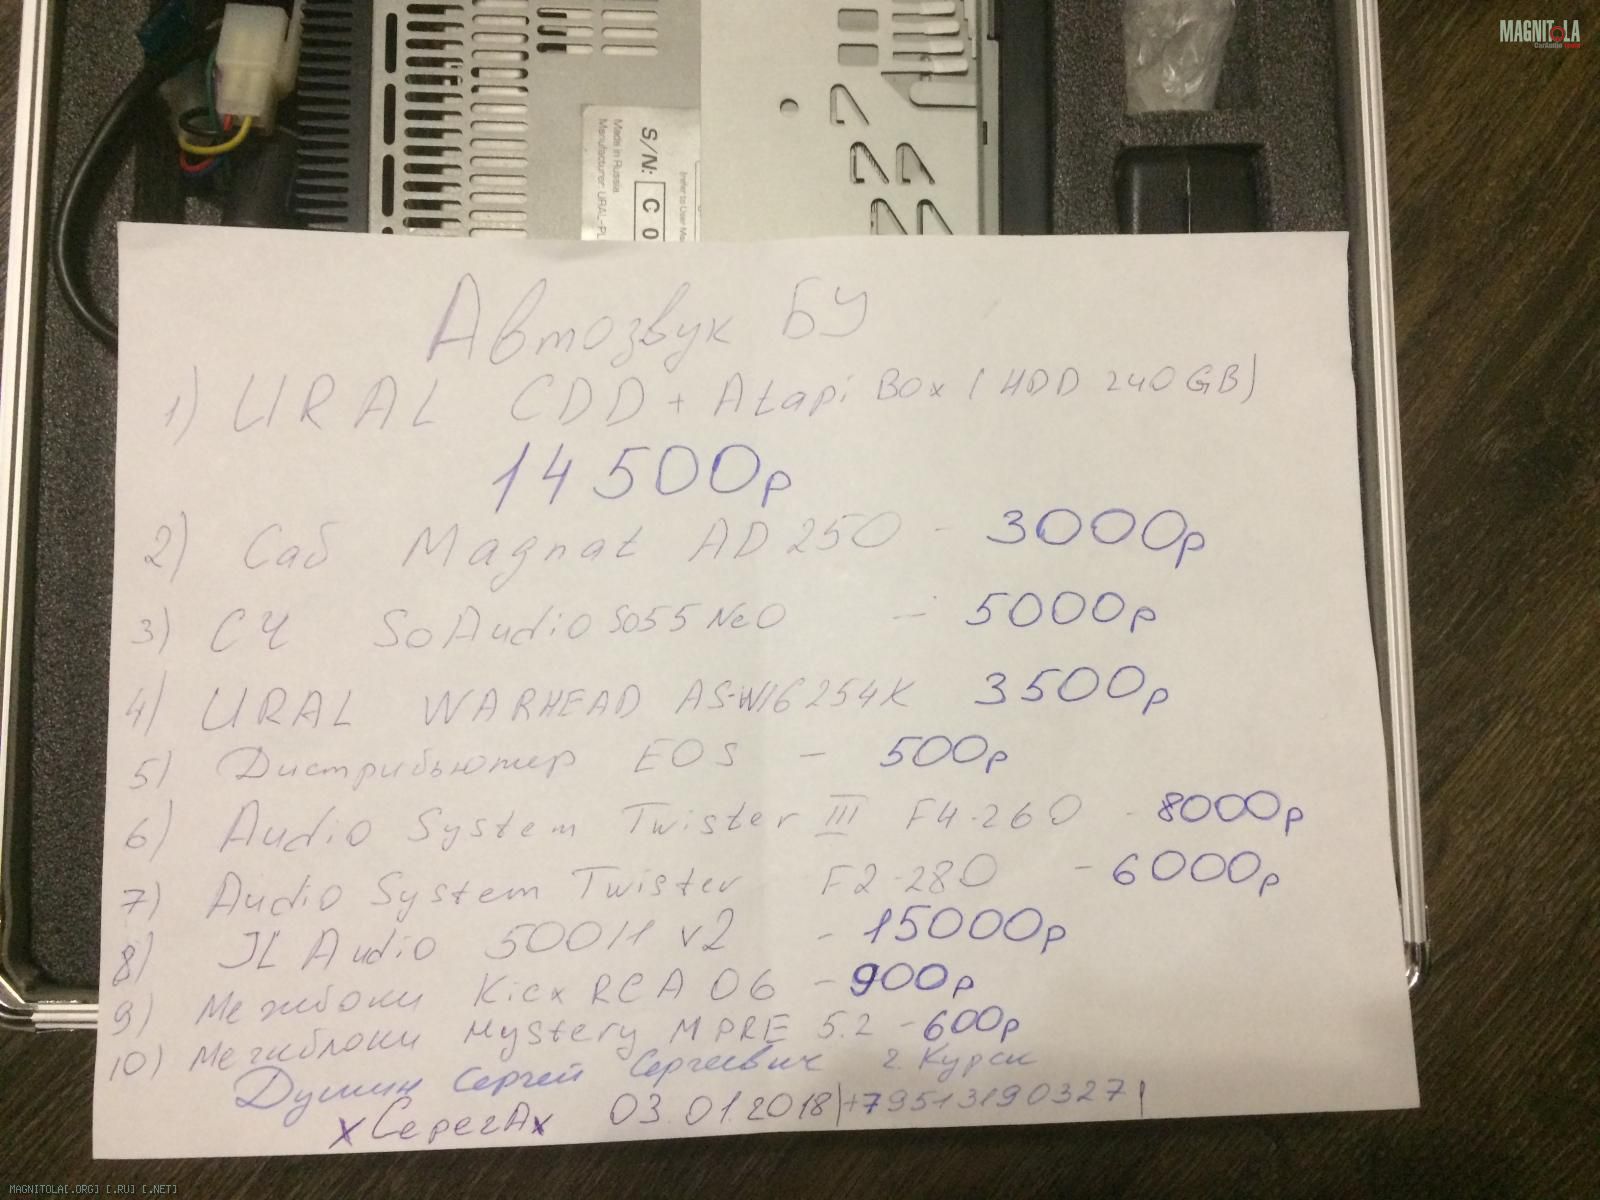 MAGNITOLA
CarAudio team
S/N: C 0
Made in Russia
Manufacturer: URAL-PL
(refer to User Ma
Автозвук БУ
1) URAL CDD + Atapi Box (HDD 240 GB)
14 500р
2) Саб Magnat AD 250 - 3000р
3) СЧ SoAudio So55 NeO - 5000р
4) URAL WARHEAD AS-W16254K 3500р
5) Дистрибьютер EOS - 500р
6) Audio System Twister III F4-260 - 8000р
7) Audio System Twister F2-280 - 6000р
8) JL Audio 500/1 v2 - 15000р
9) Межблоки Kicx RCA 06 - 900р
10) Межблоки Mystery MPRE 5.2 - 600р
Сергей Сергеевич г. Курск
xСерегАx 03.01.2018 |+79513190327|
MAGNITOLA[.ORG] [.RU] [.NET]